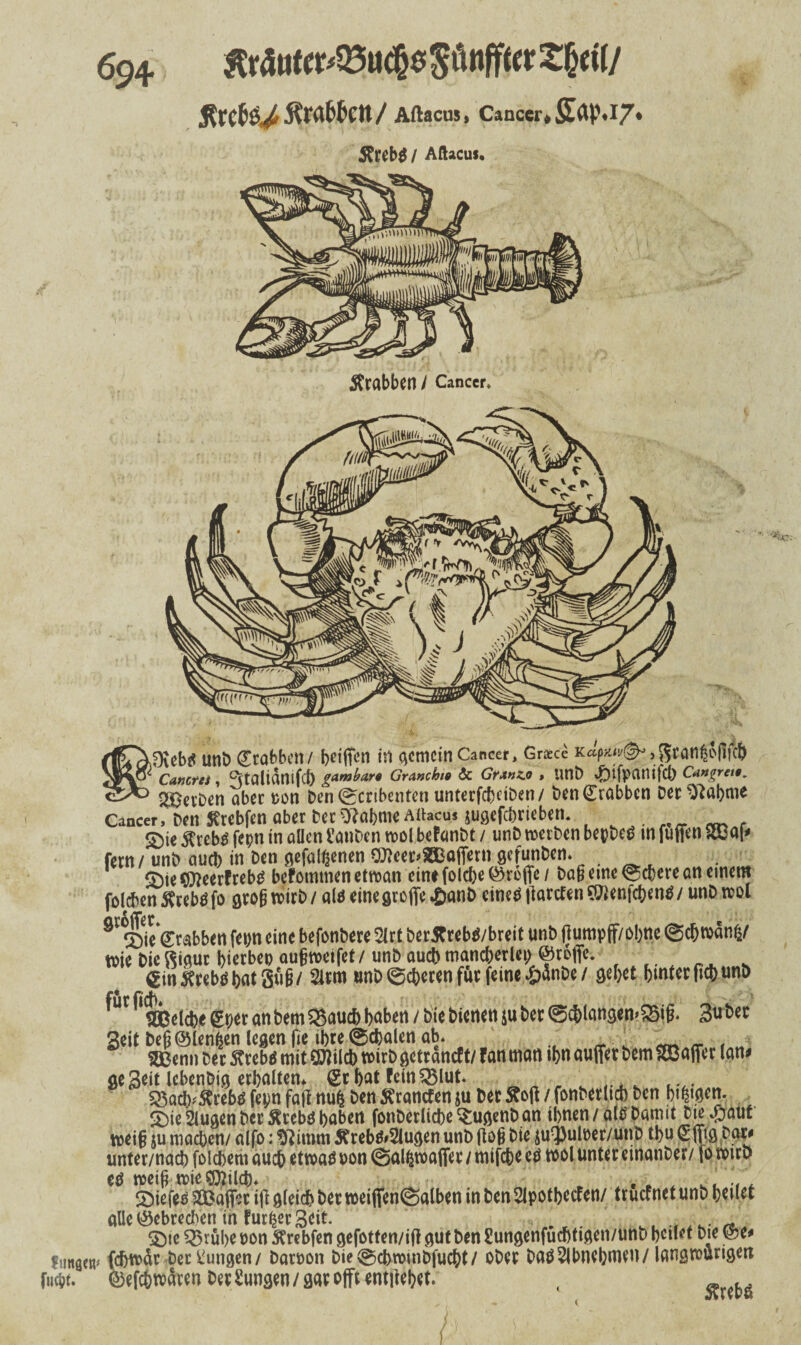 694 Kräuter-Buchs Fünffter Theil/
Krebs/ Krabben/ Astacus, Cancer, Cap.17.
Krebs / Astacus.
Krabben / Cancer.
KRebs und Crabben/ heissen in gemein Cancer, Græcè Καρκιν@, Frantzösisch
Cancres, Italiänisch gambaro Granchio & Granzo, und Hispanisch Cangreio.
Werden aber von den Scribenten unterscheiden/ den Crabben der Nahme
Cancer, den Krebsen aber der Nahme Astacus zugeschrieben.
Die Krebs seyn in allen Landen wol bekandt / und werden beydes in süssen Was-
sern/ und auch in den gesaltzenen Meer-Wassern gefunden.
Die Meerkrebs bekommen etwan eine solche Grösse / daß eine Schere an einem
solchen Krebs so groß wird / als eine grosse Hand eines starcken Menschens/ und wol
grösser.
Die Crabben seyn eine besondere Art der Krebs/breit und stumpff/ohne Schwäntz/
wie die Figur hierbey außweiset/ und auch mancherley Grösse.
Ein Krebs hat Füß/ Arm und Scheren für seine Hände / gehet hinter sich und
für sich.
Welche Eyer an dem Bauch haben / die dienen zu der Schlangen-Biß. Zu der
Zeit deß Glentzen legen sie ihre Schalen ab.
Wenn der Krebs mit Milch wird getränckt/ kan man ihn ausser dem Wasser lan-
ge Zeit lebendig erhalten. Er hat kein Blut.
Bach-Krebs seyn fast nutz den Krancken zu der Kost / sonderlich den hitzigen.
Die Augen der Krebs haben sonderliche Tugend an ihnen / als damit die Haut
weiß zu machen/ also: Nimm Krebs-Augen und stoß die zu Pulver/und thu Essig dar-
unter/nach solchem auch etwas von Saltzwasser / mische es wol unter einander/ so wird
es weiß wie Milch.
Dieses Wasser ist gleich der weissen Salben in den Apothecken/ trücknet und heilet
alle Gebrechen in kurtzer Zeit.
Die Brühe von Krebsen gesotten/ist gut den Lungensüchtigen/und heilet die Ge-
Lungen- schwär der Lungen/ darvon die Schwindsucht/ oder das Abnehmen/ langwürigen
sucht. Geschwären der Lungen / gar offt entstehet.
Krebs